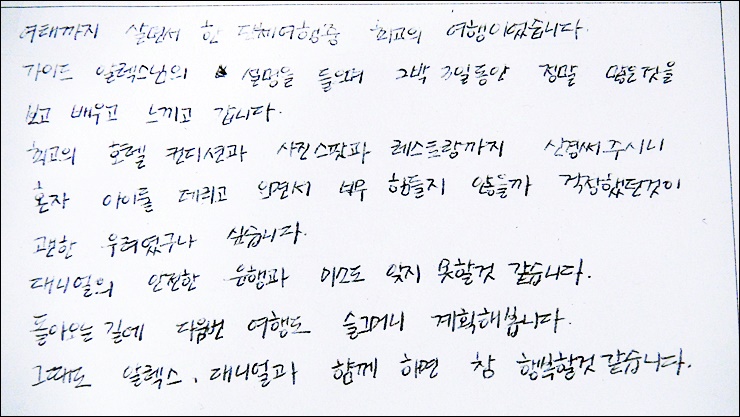 여태까지 살면서 한 단체여행중 최고의 여행이었습니다.
가이드 알렉스님의 설명을 들으며 2박 3일동안 정말 많은것을
보고 배우고 느끼고 갑니다.
최고의 호텔 컨디션과 사진스팟과 레스토랑까지 신경써주시니
혼자 아이를 데리고 오면서 너무 힘들지 않을까 걱정했던것이
괜한 우려였구나 싶습니다.
대니얼의 안전한 운행과 미소도 잊지 못할것 같습니다.
돌아오는길에 다음번 여행도 슬그머니 계획해봅니다.
그때도 알렉스, 대니얼과 함께 하면 참 행복할것 같습니다.